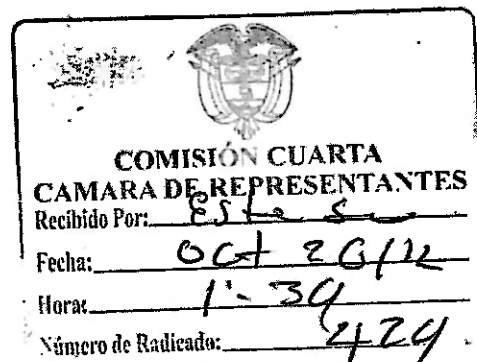 COMISIÓN CUARTA
CAMARA DE REPRESENTANTES
Recibido Por:
Fecha: Oct 26/12
Hora: 1:30
Número de Radicado: 424